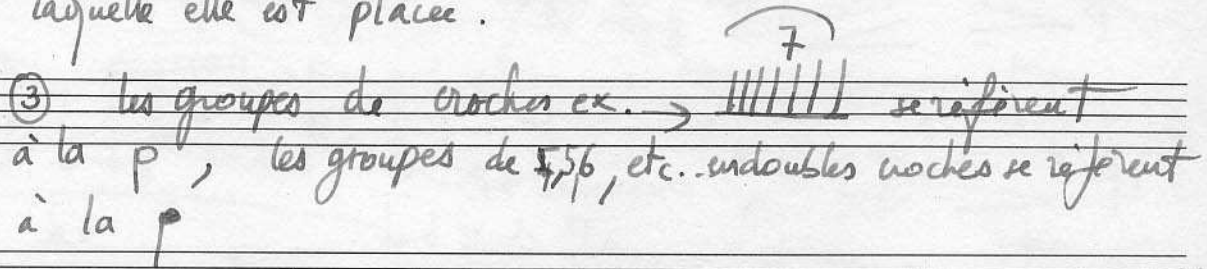 laquelle elle est placée.
7
③ les groupes de croches ex. → se réfèrent
à la 𝅗𝅥, les groupes de 5,6, etc. en doubles croches se réfèrent
à la ♩